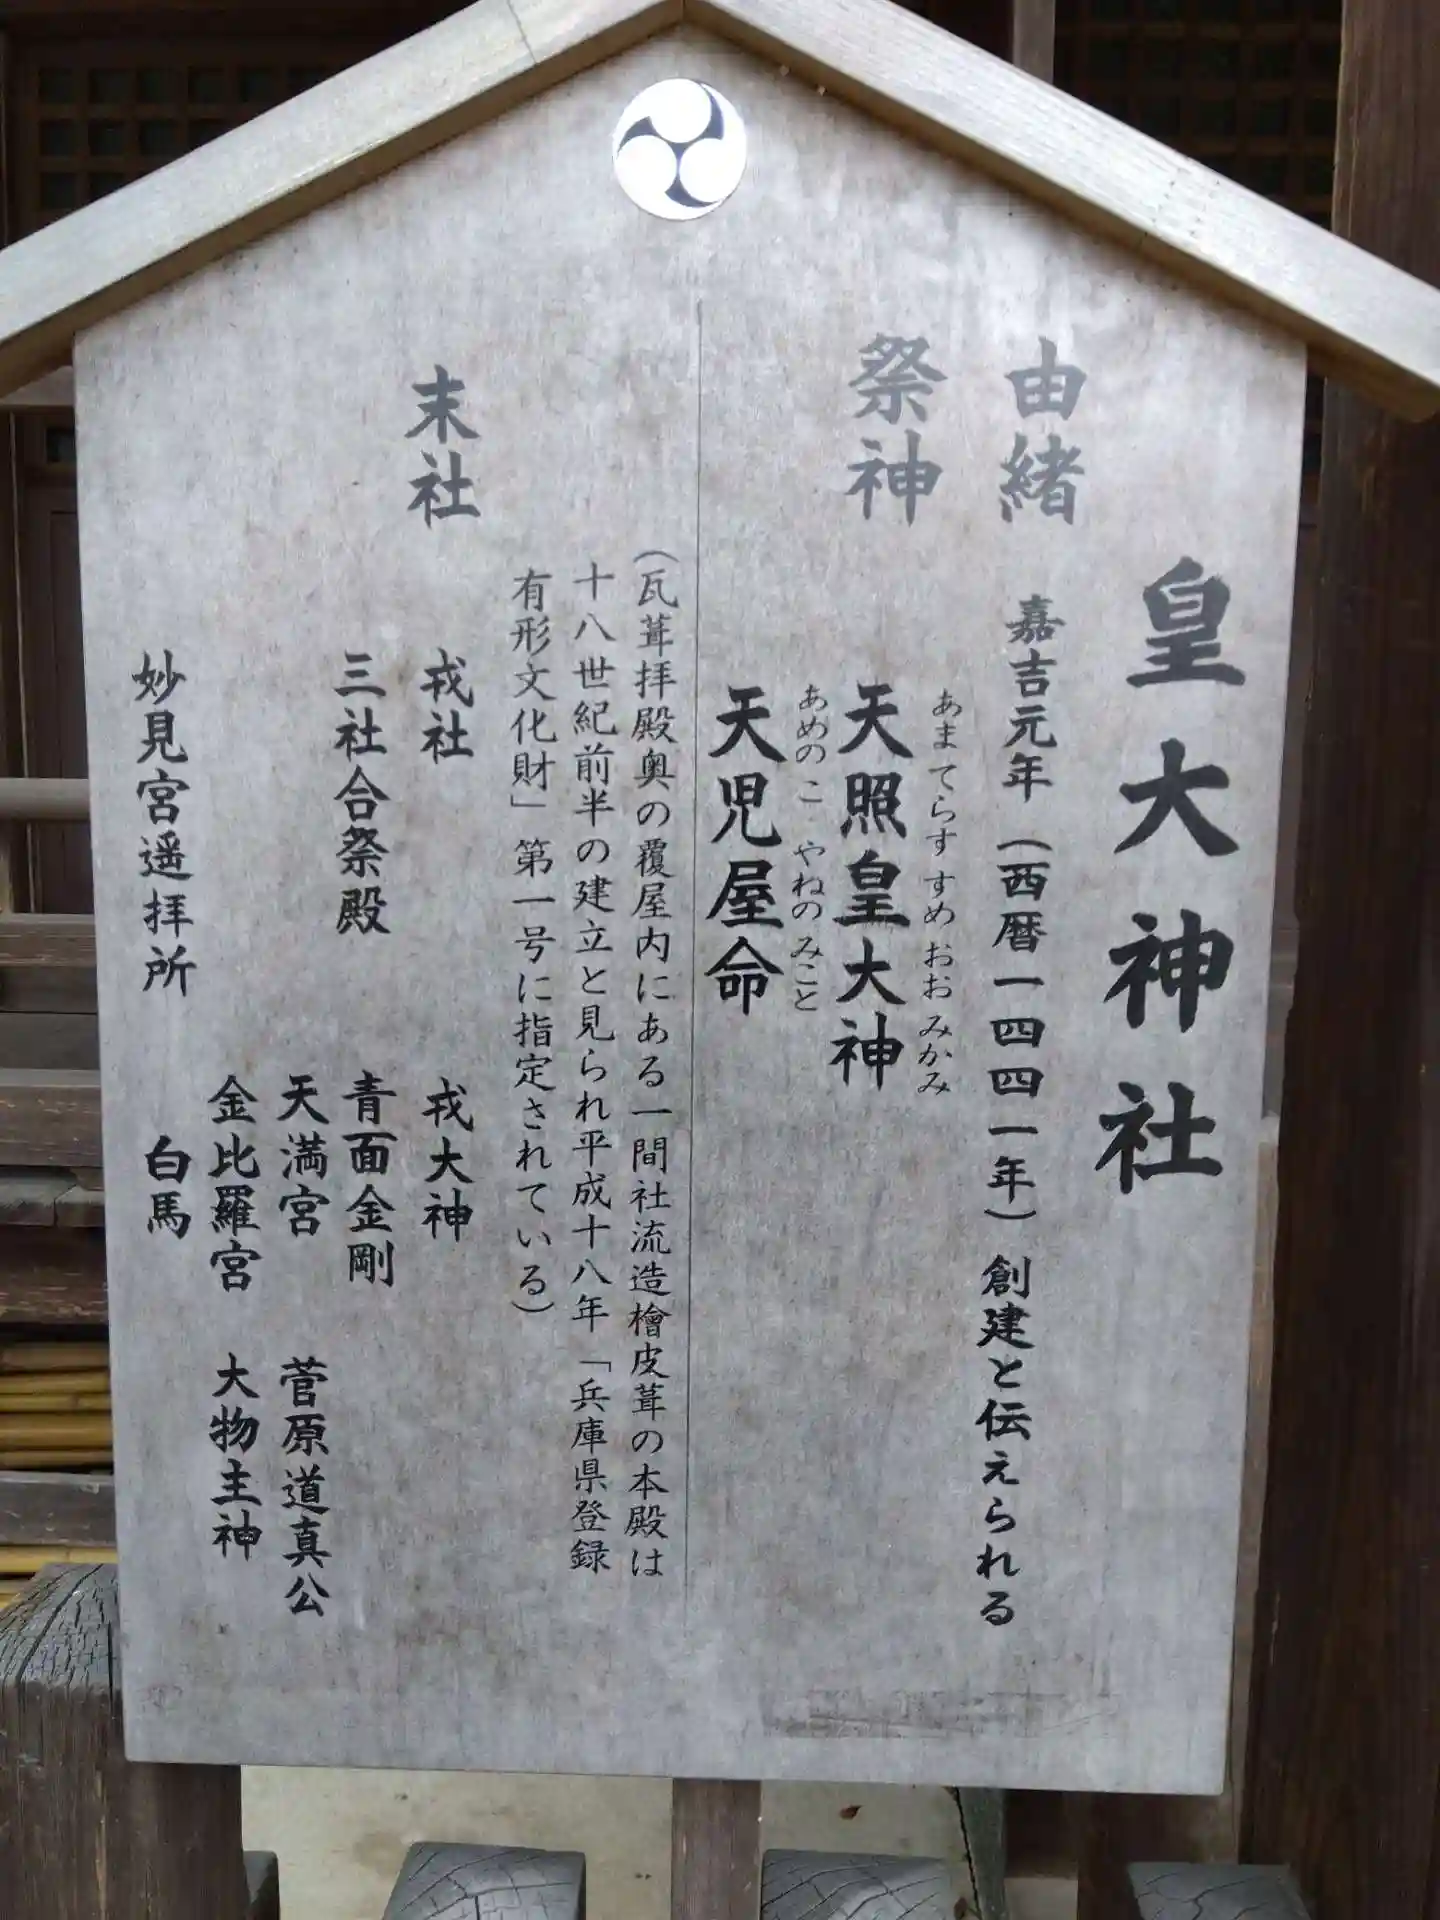 皇大神社
由緒
嘉吉元年（西暦一四四一年）創建と伝えられる
祭神
あまてらすすめおおみかみ
天照皇大神
あめのこやねのみこと
天児屋命
（瓦葺拝殿奥の覆屋内にある一間社流造檜皮葺の本殿は
十八世紀前半の建立と見られ平成十八年「兵庫県登録
有形文化財」第一号に指定されている）
末社
戎社 戎大神
三社合祭殿 青面金剛
天満宮 菅原道真公
金比羅宮 大物主神
妙見宮遥拝所 白馬